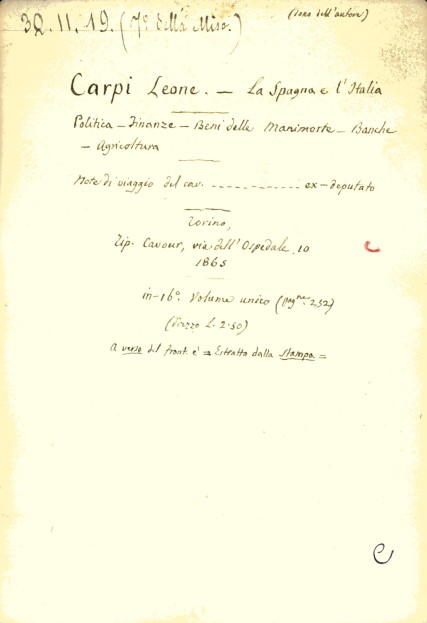 32.II.19. (7º della Misc.)
(Dono dell'autore)
Carpi Leone. — La Spagna e l'Italia
Politica — Finanze — Beni delle Manimorte — Banche
— Agricoltura
Note di viaggio del cav. .............. ex-deputato
Torino,
Tip. Cavour, via dell'Ospedale, 10
1865
in-16º. Volume unico (pagne. 252)
(Prezzo L. 2.50)
A verso del front. è = Estratto dalla Stampa =
C